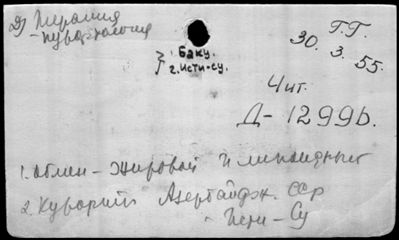 Д) Терапия
- курортология
Баку.
г. Исти-су.
Г.Г.
30. 3. 55.
Чит.
Д-1299б.
1. Обмен - жировой и липоидный
2. Курорты Азербайдж. ССР
Исти-Су